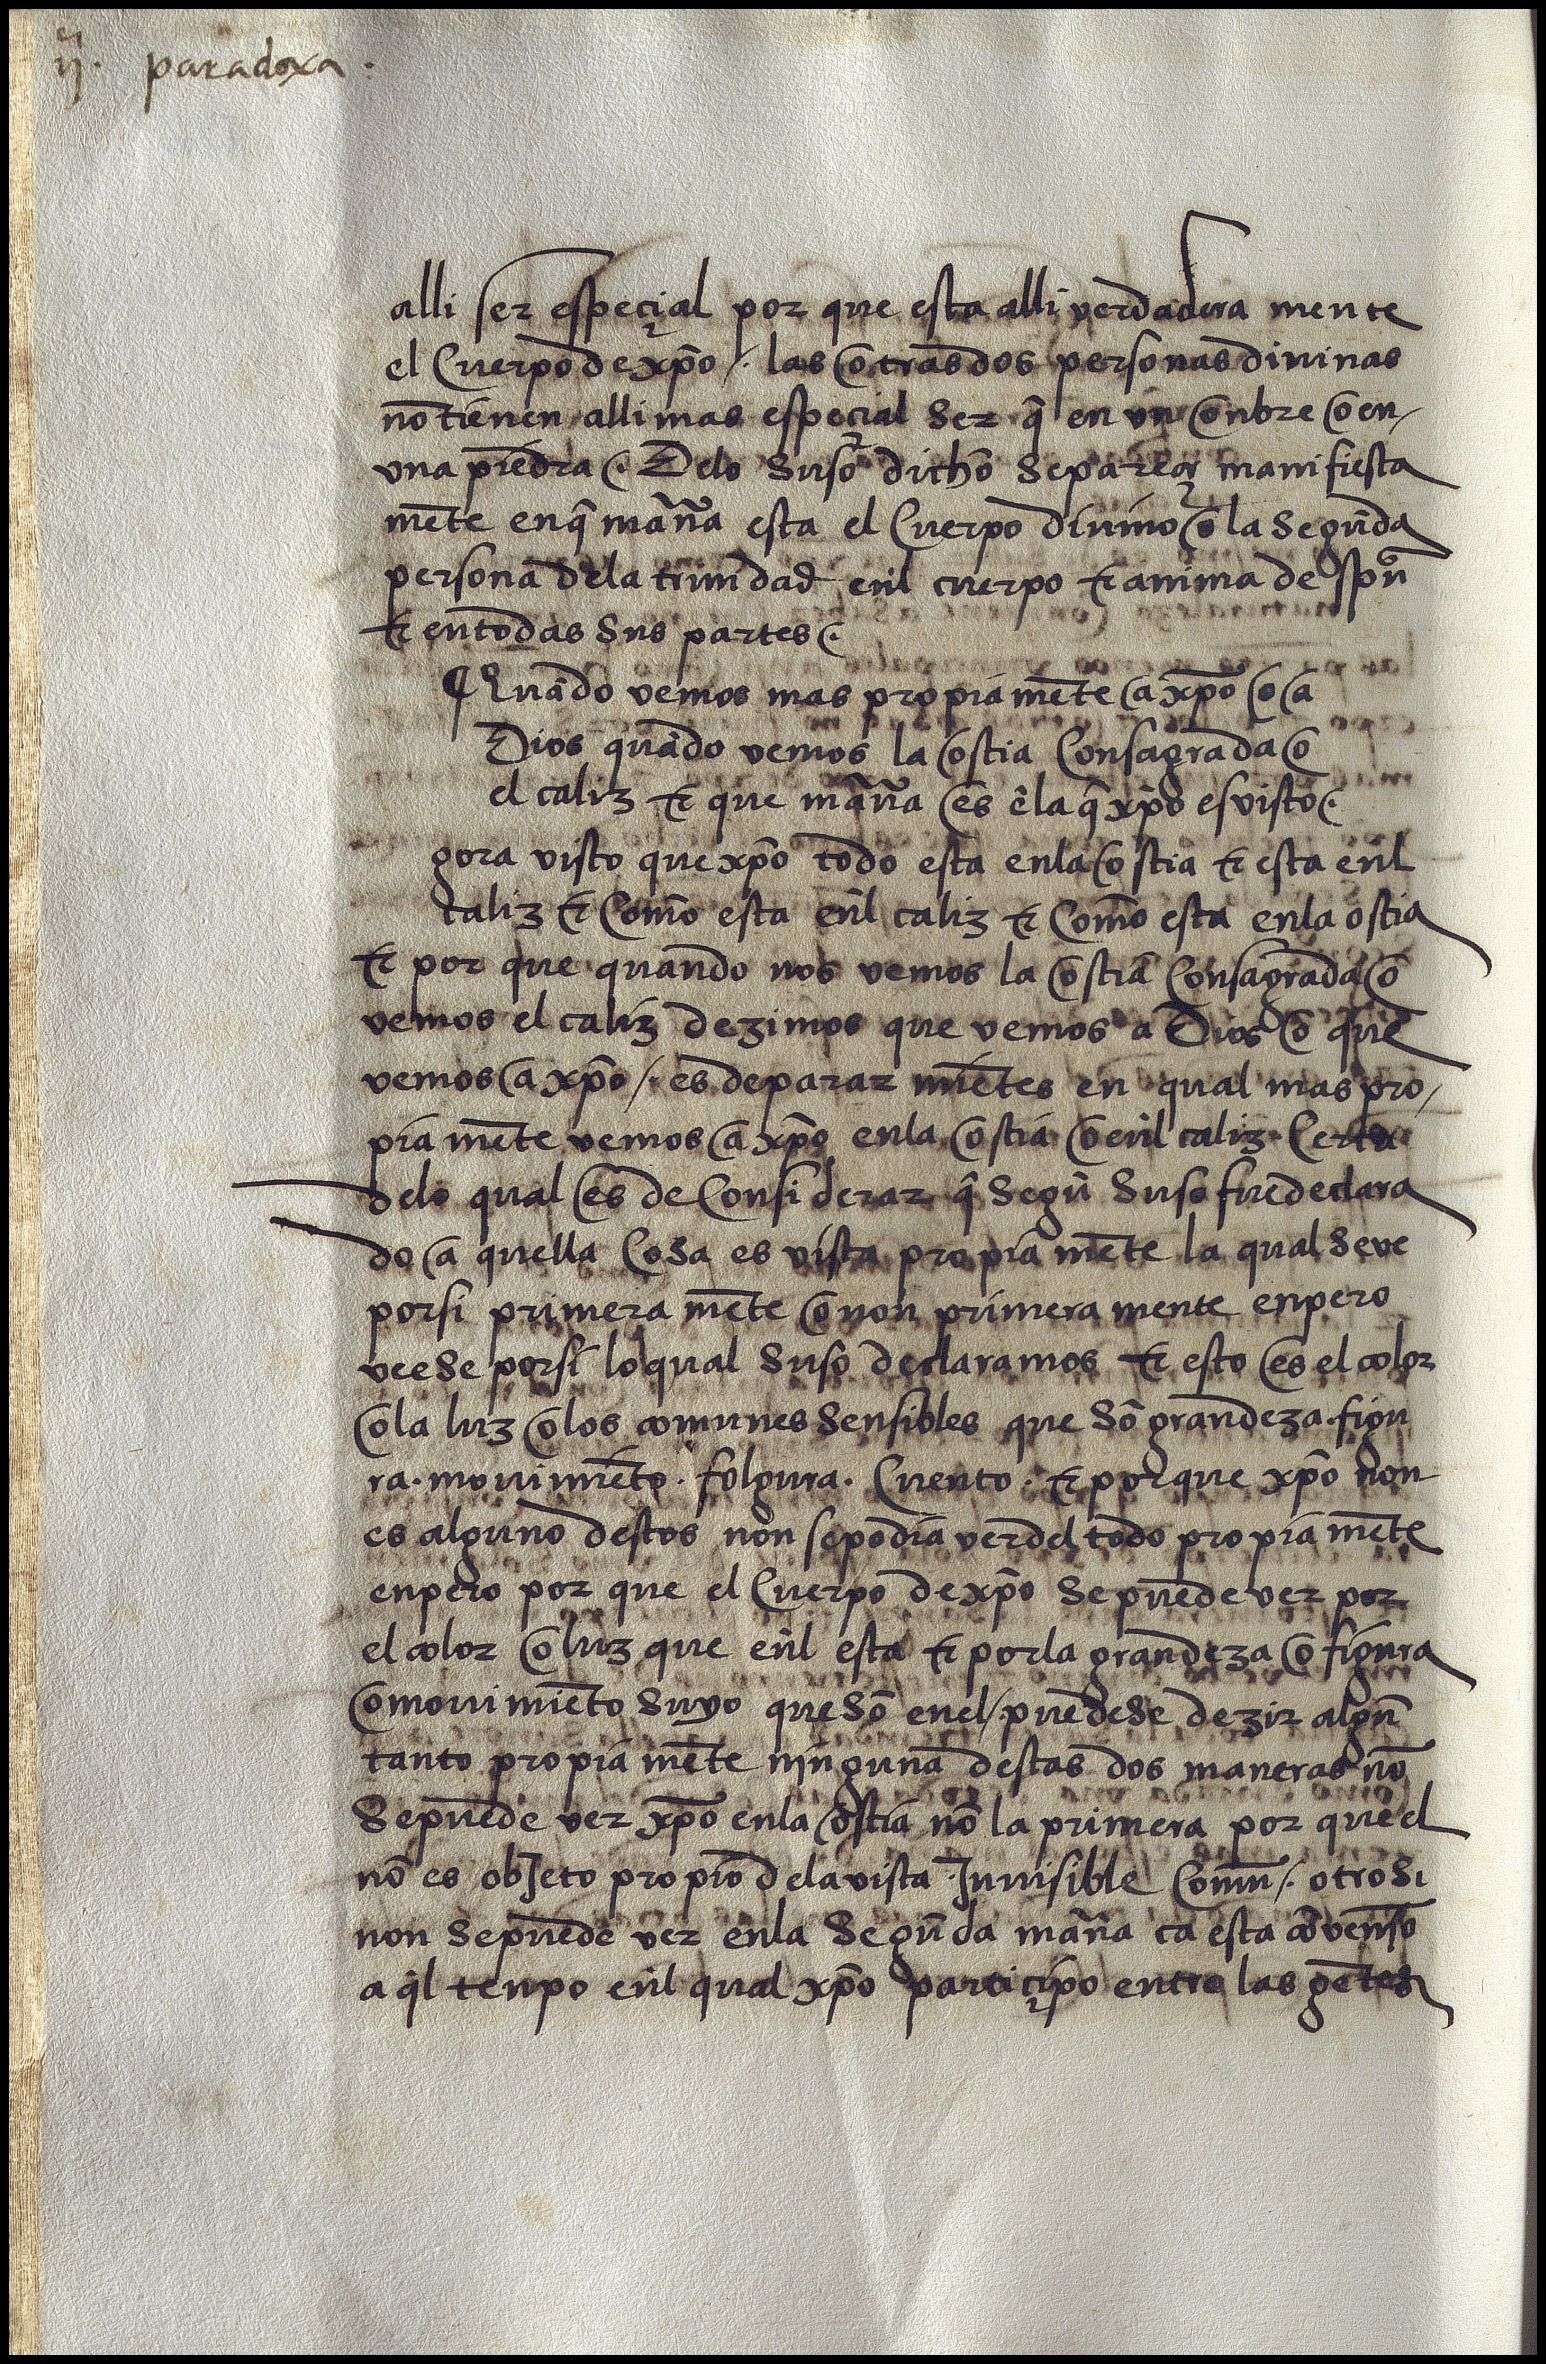 ıȷ. paradoxa.
alli ser espeçial por que esta alli verdadera mente
el Cuerpo de xp̃o /. las otras dos personas diuinas
nõ tienen alli mas especial ser q̃ en vn onbre o en
vna piedra. Delo suso dicho se pareçe manifiesta
mẽte en q̃ mañ̃a esta el Cuerpo diuino o la segũda
persona dela trinidad enl̃ cuerpo ⁊ anima de
⁊ en todas sus partes.
¶ Quãdo vemos mas propia mẽte a xp̃o o a
Dios quãdo vemos la ostia Consagrada o
el caliz ⁊ que mañ̃a es ẽ la q̃ xp̃o es visto.
gora visto que xp̃o todo esta enla ostia ⁊ esta enl̃
caliz ⁊ Como esta enl̃ caliz ⁊ Como esta enla ostia
⁊ por que quando nos vemos la ostia Consagrada o
vemos el caliz dezimos que vemos a Dios o que
vemos a xp̃o /. es de parar miẽtes en qual mas pro/
pia mẽte vemos a xp̃o enla ostia o enl̃ caliz. Cerca
delo qual es de Considerar q̃ segũ suso fue declara
do a quella Cosa es vista propia mẽte la qual se ve
por si primera mẽte o non primera mente enpero
veese por si lo qual suso declaramos ⁊ esto es el color
o la luz o los comunes sensibles que sõ grandeza. figu
ra. mouimiẽto. folgura. Cuento. ⁊ por que xp̃o non
es alguno destos non se podia ver del todo propia mẽte
enpero por que el Cuerpo de xp̃o se puede ver por
el color o luz que enl̃ esta ⁊ por la grandeza o figura
o mouimiẽto suyo que sõ enel /. puedese dezir algũ
tanto propia mẽte ninguna destas dos maneras nõ
se puede ver xp̃o enla ostia nõ la primera por que el
nõ es obJeto propio dela vista Jnuisible Comũ /. otro si
non se puede ver enla segũda mañ̃a ca esta
a q̃l tenpo enl̃ qual xp̃o participo entre las gẽtes